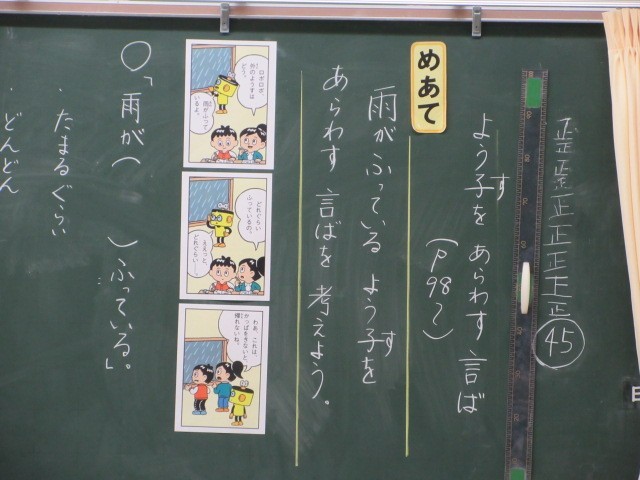 正正正正正
45
よう子をあらわす言ば
す
(P98~)
めあて
雨がふっているよう子を
す
あらわす言ばを考えよう。
ロボロボ、
外のようすは
どう。
雨がふって
いるよ。
どれぐらい
ふっているの。
ええっと
どれぐらい…
わあ、これは、
かっぱをきないと、
○「雨が( )ふっている」。
・たまるぐらい
・どんどん